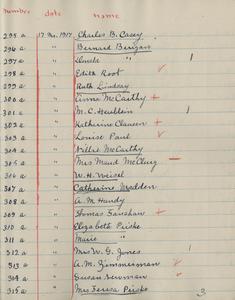 number date name
295 a 17 Nov. 1917 Charles B. Casey
296 a " Bernard Berigan
297 a " " 1
298 a " Edith Root ✓
299 a " Ruth Lindsay
300 a " Anna McCarthy +
301 a " M. C. Heublein 1
302 a " Katherine Clausen +
303 a " Louise Paul ✓
304 a " McCarthy
305 a " Mrs Maud McClurg +
306 a " W. H. Weisel
307 a " Catherine Madden
308 a " A. M. Handy
309 a " Thomas Fanshaw +
310 a " Elizabeth Peiske
311 a " Marie "
312 a " Mrs W. G. Jones 1
313 a " A. M. Zimmerman ✓
314 a " Susan Newman ✓
315 a " Mrs Teresa Peiske
3